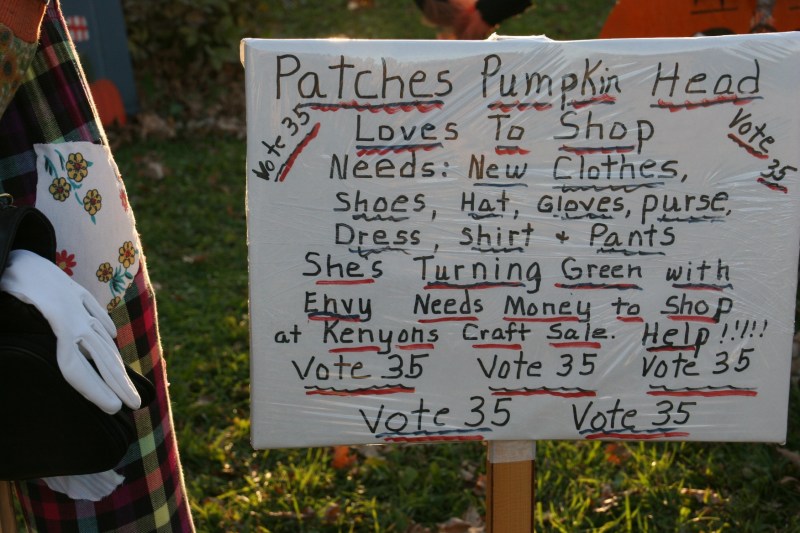 Patches Pumpkin Head
Vote 35
Loves To Shop
Vote 35
Needs: New Clothes,
Shoes, Hat, Gloves, purse,
Dress, shirt + Pants
She's Turning Green with
Envy Needs Money to Shop
at Kenyons Craft Sale. Help!!!!!
Vote 35 Vote 35 Vote 35
Vote 35 Vote 35